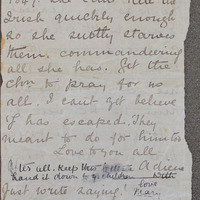 Irish quickly enough
so she subtly starves
them, commandeering
all she has. Get the
Chn to pray for us
all. I can't get believe
J has escaped. They
meant to do for him too
Love to you all
It's all. Keep this
Adieu
hand it down to yr children
With love
Just wrote saying!
Mary